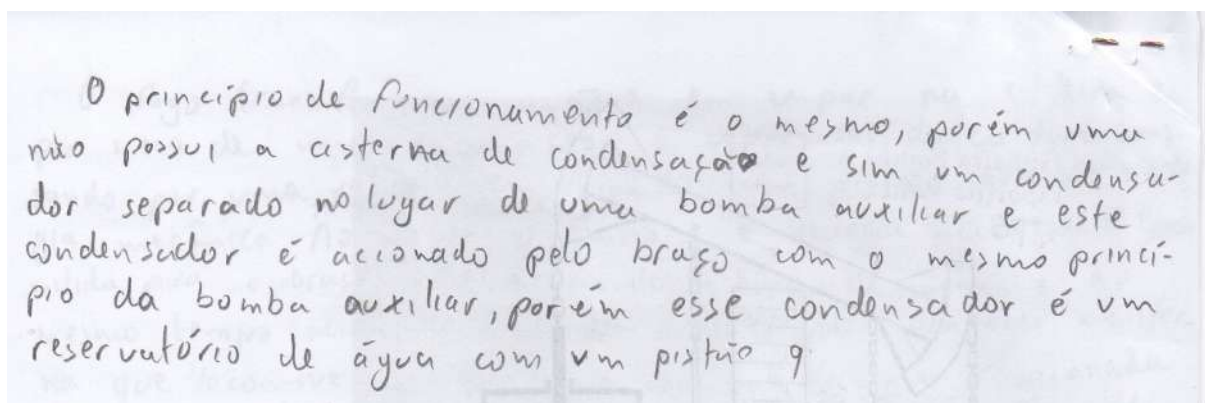 O princípio de funcionamento é o mesmo, porém uma
não possui a cisterna de condensação e sim um condensa-
dor separado no lugar de uma bomba auxiliar e este
condensador é acionado pelo braço com o mesmo princí-
pio da bomba auxiliar, porém esse condensador é um
reservatório de água com um pistão q